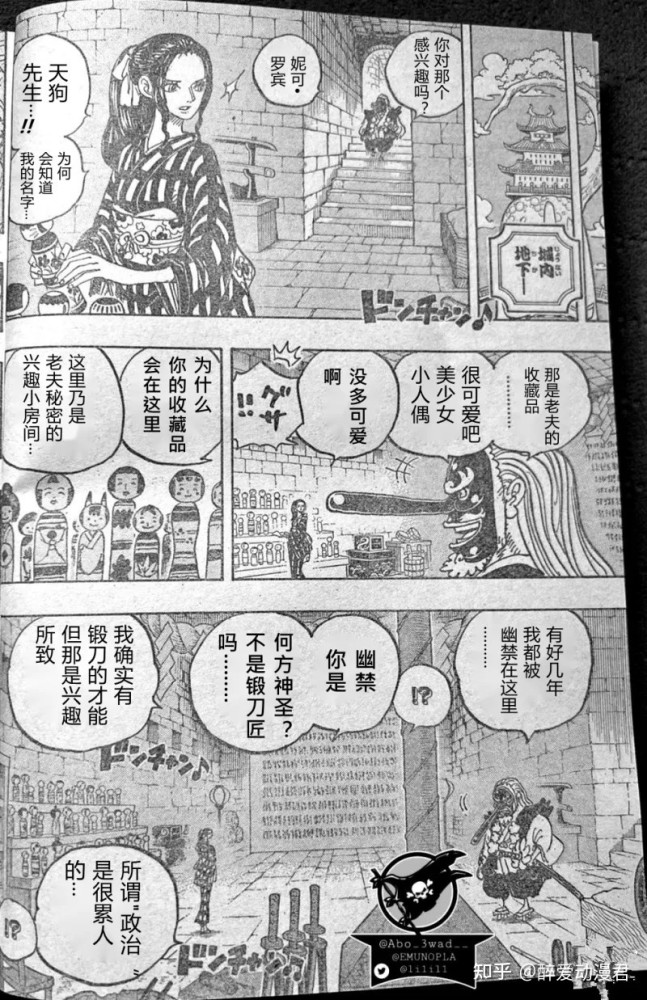 城内
地下
你对那个
感兴趣吗?
妮可·
罗宾
天狗
先生…!!
为何
会知道
我的名字…
ドンチャン♪
那是老夫的
收藏品
………
很可爱吧
美少女
小人偶
没多可爱
啊
为什么
你的收藏品
会在这里
这里乃是
老夫秘密的
兴趣小房间…
有好几年
我都被
幽禁在这里
………
!?
幽禁
你是
何方神圣?
不是锻刀匠
吗………
我确实有
锻刀的才能
但那是兴趣
所致
ドンチャン♪
所谓"政治"
是很累人
的…
!?
ドンチャン♪
@Abo_3wad__
@EMUNOPLA
@li1i11
知乎 @醉爱动漫君